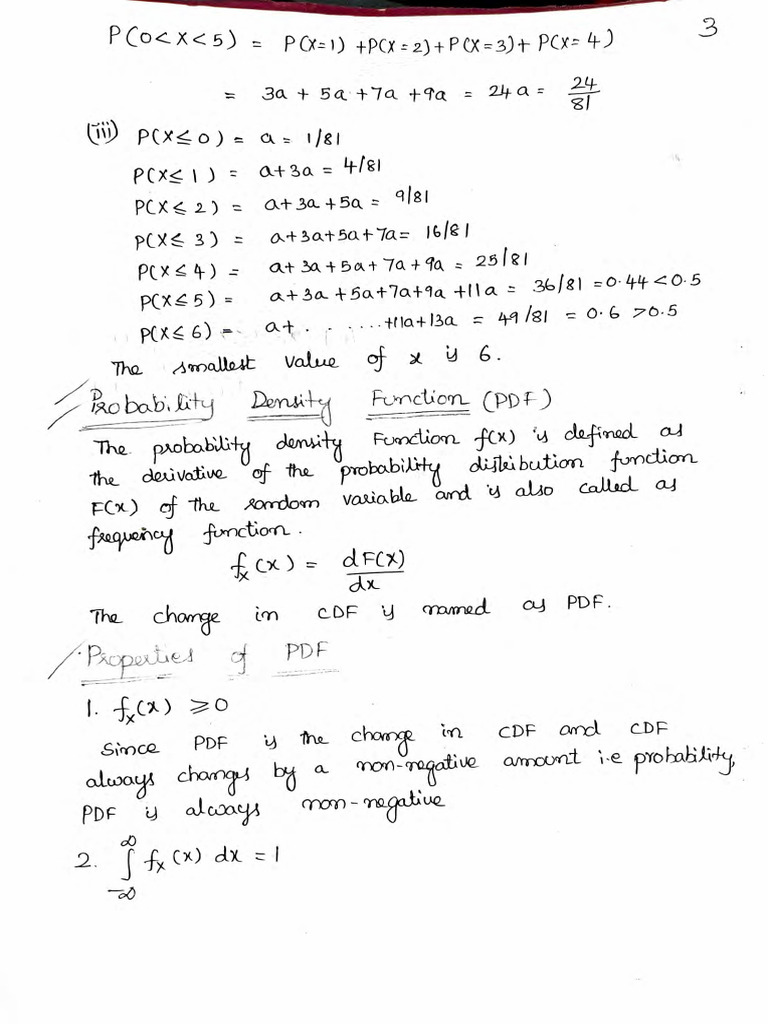 3
P(0<X<5) = P(X=1) +P(X=2)+P(X=3)+ P(X=4)
= 3a + 5a +7a +9a = 24a = 24/81
(iii) P(X≤0) = a = 1/81
P(X≤1) = a+3a = 4/81
P(X≤2) = a+3a+5a = 9/81
P(X≤3) = a+3a+5a+7a= 16/81
P(X≤4) = a+3a+5a+7a+9a = 25/81
P(X≤5) = a+3a+5a+7a+9a+11a = 36/81 =0.44<0.5
P(X≤6) = a+. . .....+11a+13a = 49/81 = 0.6 >0.5
The smallest value of x is 6.
Probability Density Function (PDF)
The probability density Function f(x) is defined as
the derivative of the probability distribution function
F(x) of the random variable and is also called as
frequency function.
fx(x) = dF(X)/dx
The change in CDF is named as PDF.
Properties of PDF
1. fx(x) ≥0
Since PDF is the change in CDF and CDF
always changes by a non-negative amount i.e probability,
PDF is always non-negative
2. ∫_{-∞}^{∞} fx(x) dx = 1